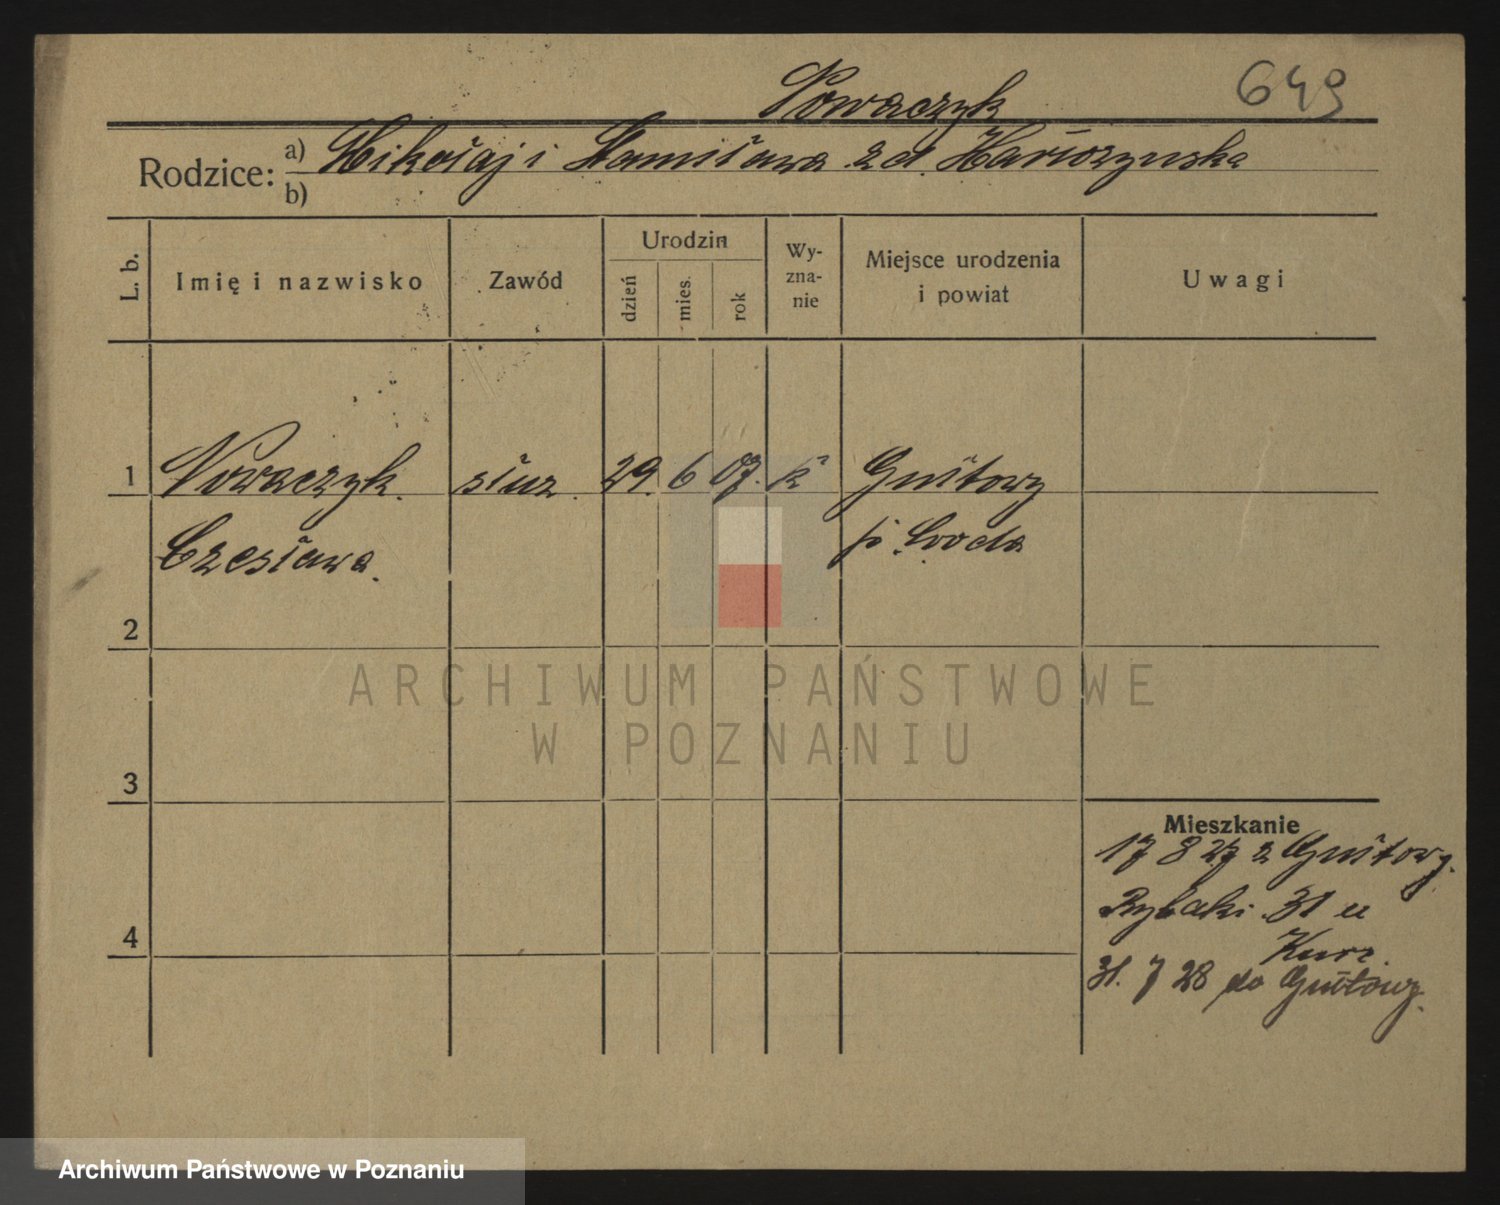 Nowaczyk 649
Rodzice: a) Mikołaj i Stanisława z d.
b)
L. b. Imię i nazwisko Zawód Urodzin dzień mies. rok Wy-zna-nie Miejsce urodzenia i powiat Uwagi
1 Nowaczyk służ. 29. 6 07. k Gułtowy
Czesława. p. Środa
2
3
Mieszkanie
17 8 27 z Gułtowy.
Rybaki 31 u
4
31. 7 28 do Gułtowy.
ARCHIWUM PAŃSTWOWE
W POZNANIU
Archiwum Państwowe w Poznaniu